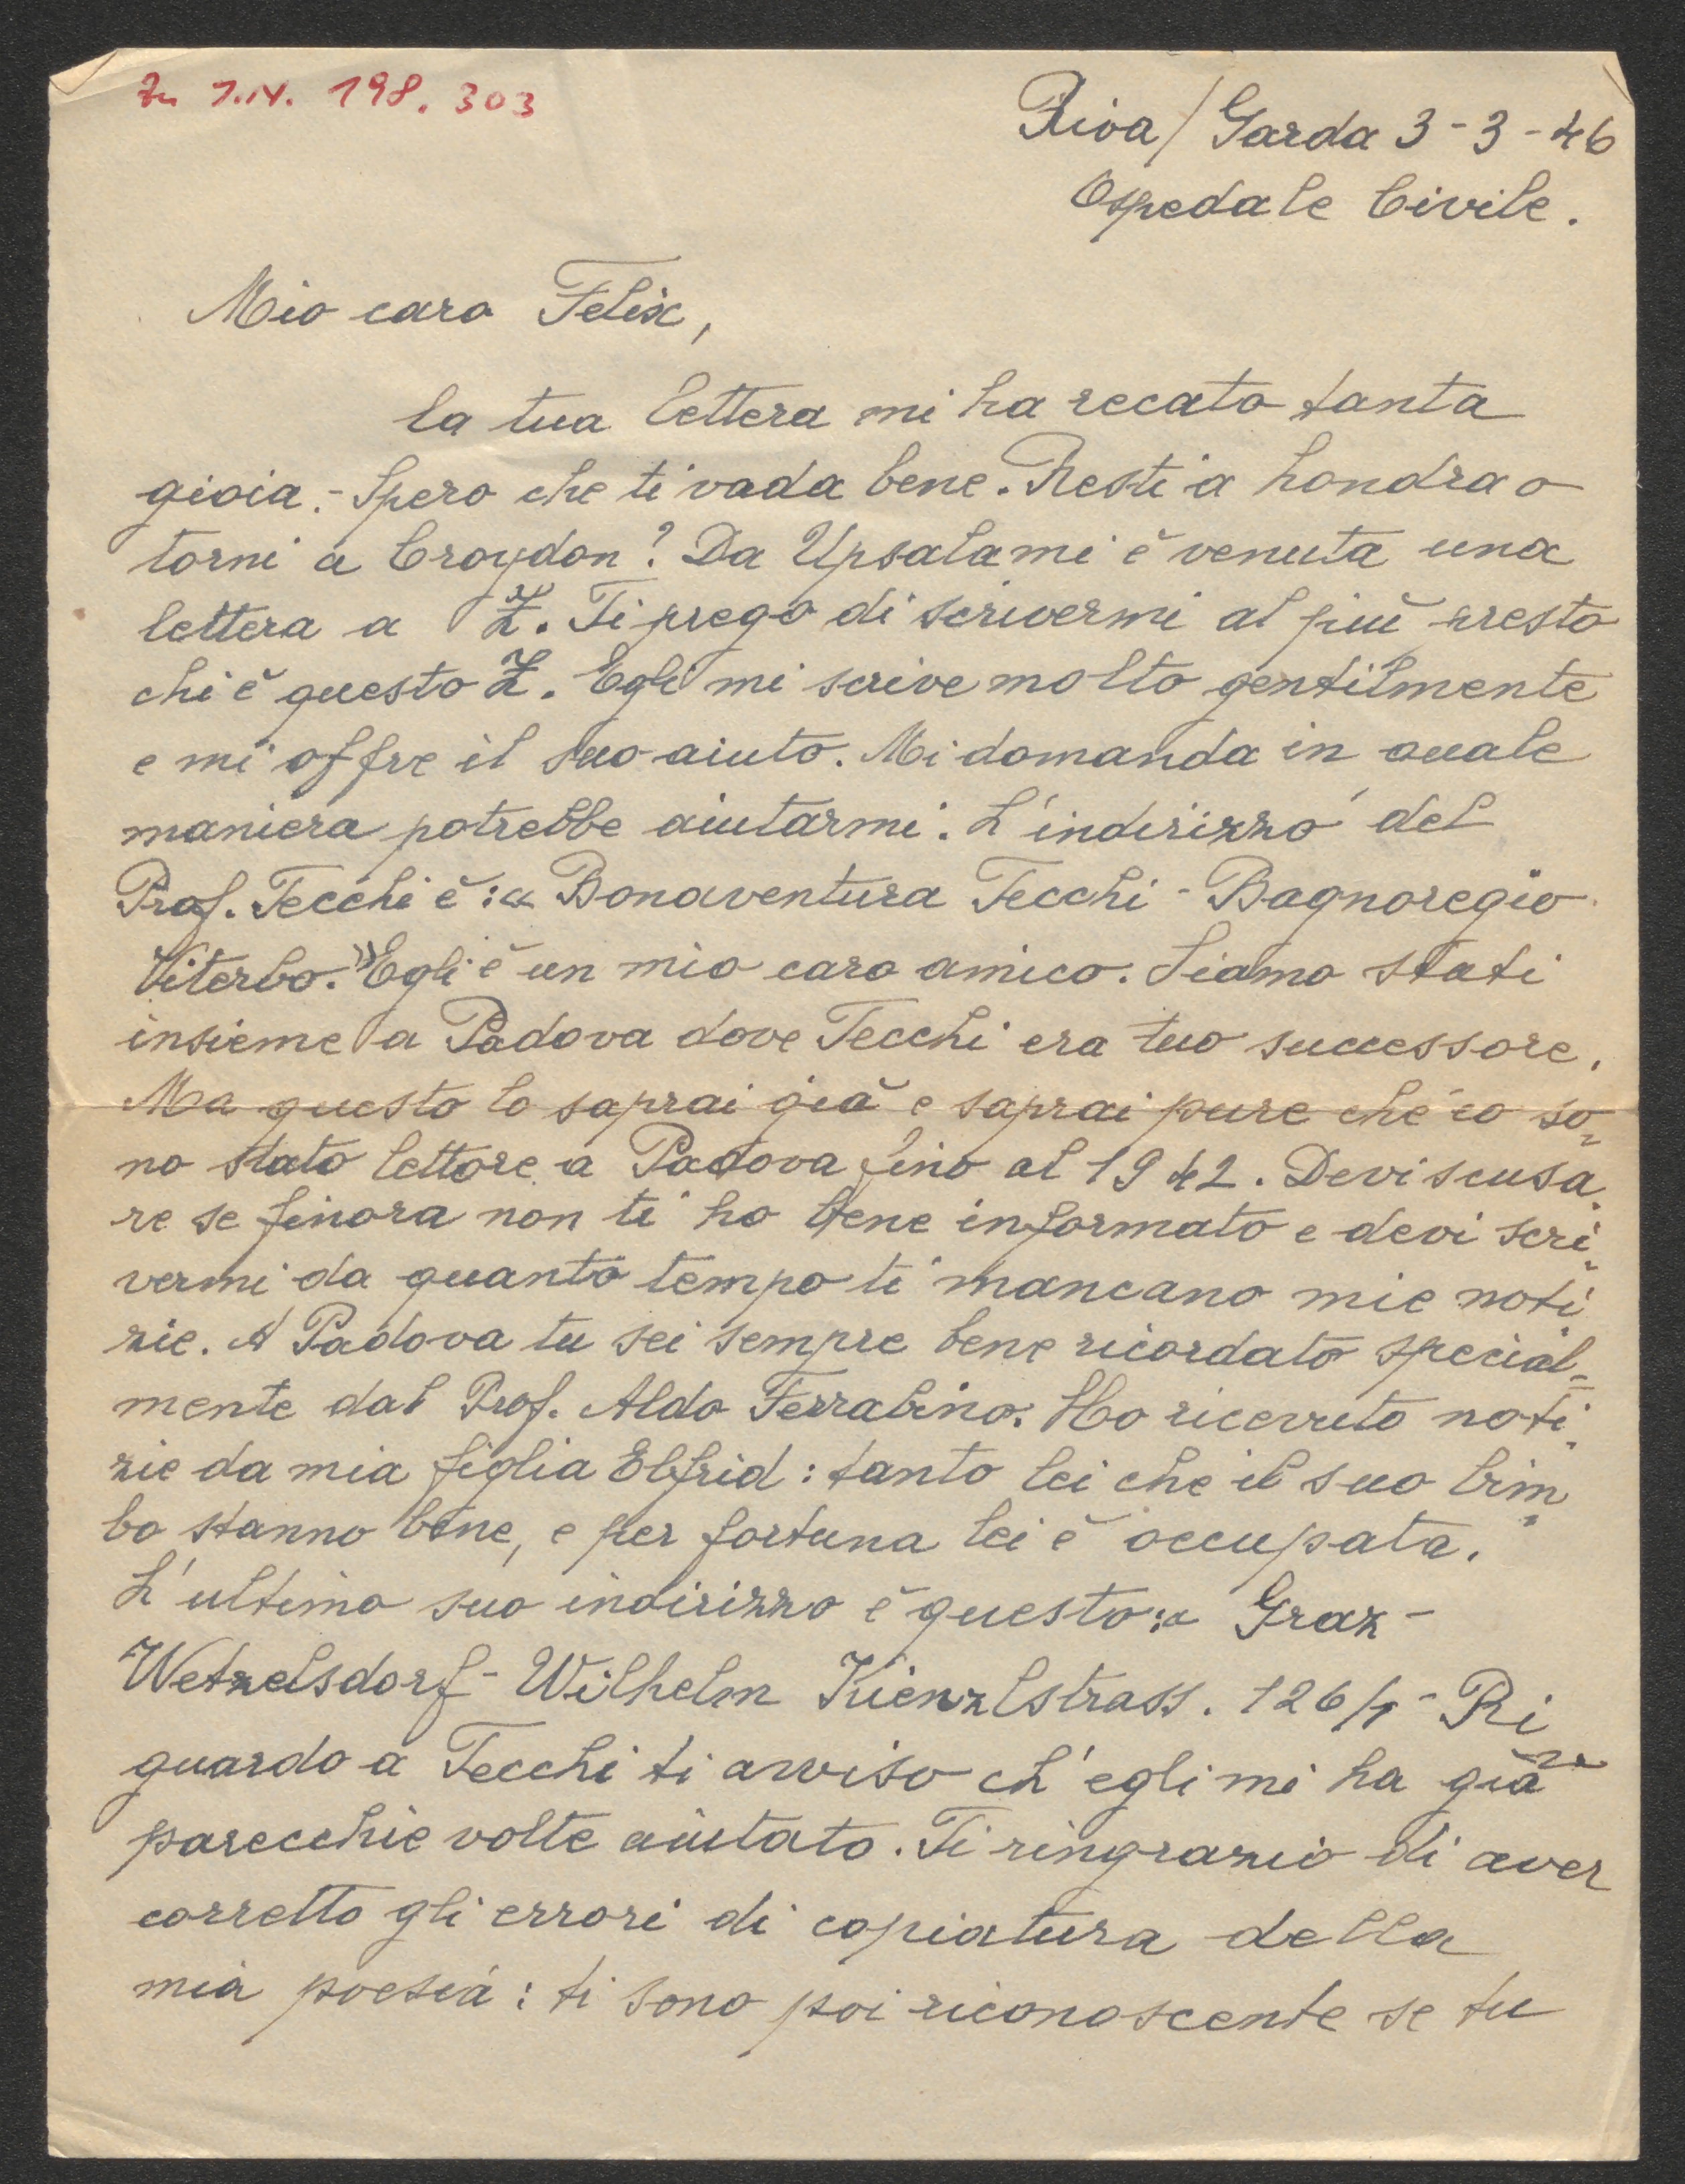 Zu I.N. 198.303
Riva / Garda 3-3-46
Ospedale Civile.
Mio caro Felix,
la tua lettera mi ha recato tanta
gioia.- Spero che ti vada bene. Resti a Londra o
torni a Croydon? Da Upsala mi è venuta una
lettera a Z. Ti prego di scrivermi al più presto
chi è questo Z. Egli mi scrive molto gentilmente
e mi offre il suo aiuto. Mi domanda in quale
maniera potrebbe aiutarmi. L'indirizzo del
Prof. Tecchi è: « Bonaventura Tecchi - Bagnoregio
Viterbo.» Egli è un mio caro amico. Siamo stati
insieme a Padova dove Tecchi era tuo successore.
Ma questo lo saprai già e saprai pure che io so=
no stato lettore a Padova fino al 1942. Devi scusa=
re se finora non ti ho bene informato e devi scri=
vermi da quanto tempo ti mancano mie noti
zie. A Padova tu sei sempre bene ricordato special=
mente dal Prof. Aldo Ferrabino. Ho ricevuto noti=
zie da mia figlia Elfrid: tanto lei che il suo bim=
bo stanno bene, e per fortuna lei è occupata.
L'ultimo suo indirizzo è questo: « Graz -
Wetzelsdorf - Wilhelm Kienzlstrass. 126/1 - Ri=
guardo a Tecchi ti avviso ch'egli mi ha già
parecchie volte aiutato. Ti ringrazio di aver
corretto gli errori di copiatura della
mia poesia: ti sono poi riconoscente se tu